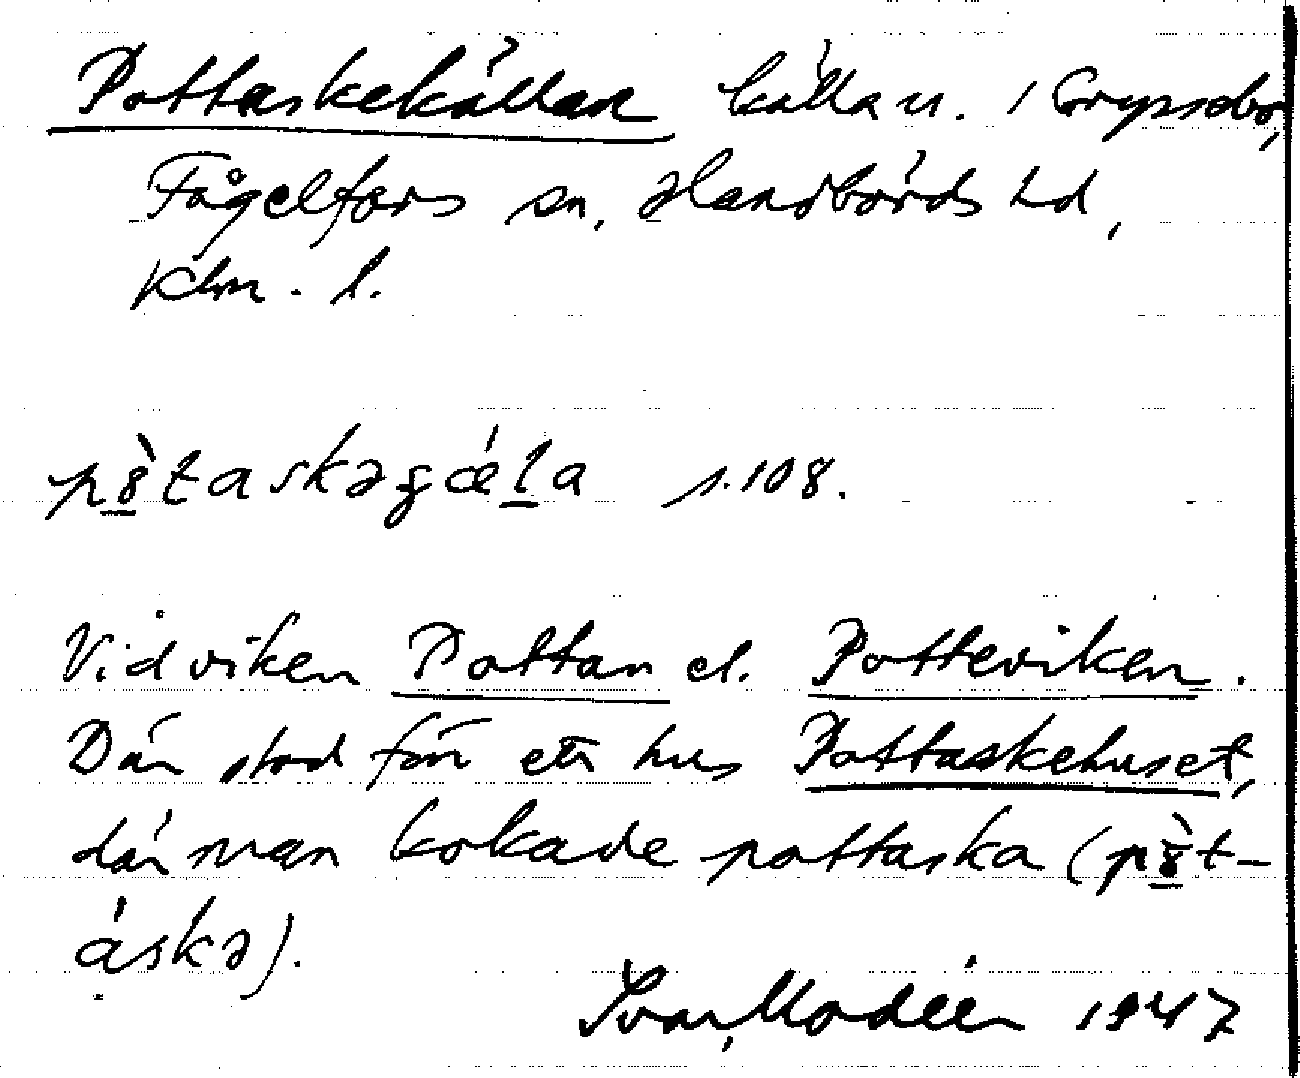 Pottaskekällan källa n. i Grypsebo,
Fågelfors sn, Handbörds hd,
Klm. l.
pò̱taskəʒǽḻa s. 108.
Vid viken Pottan el. Potteviken.
Där stod förr ett hus Pottaskehuset,
där man kokade pottaska (pò̱t-
áskə).
Ivar Modéer 1947